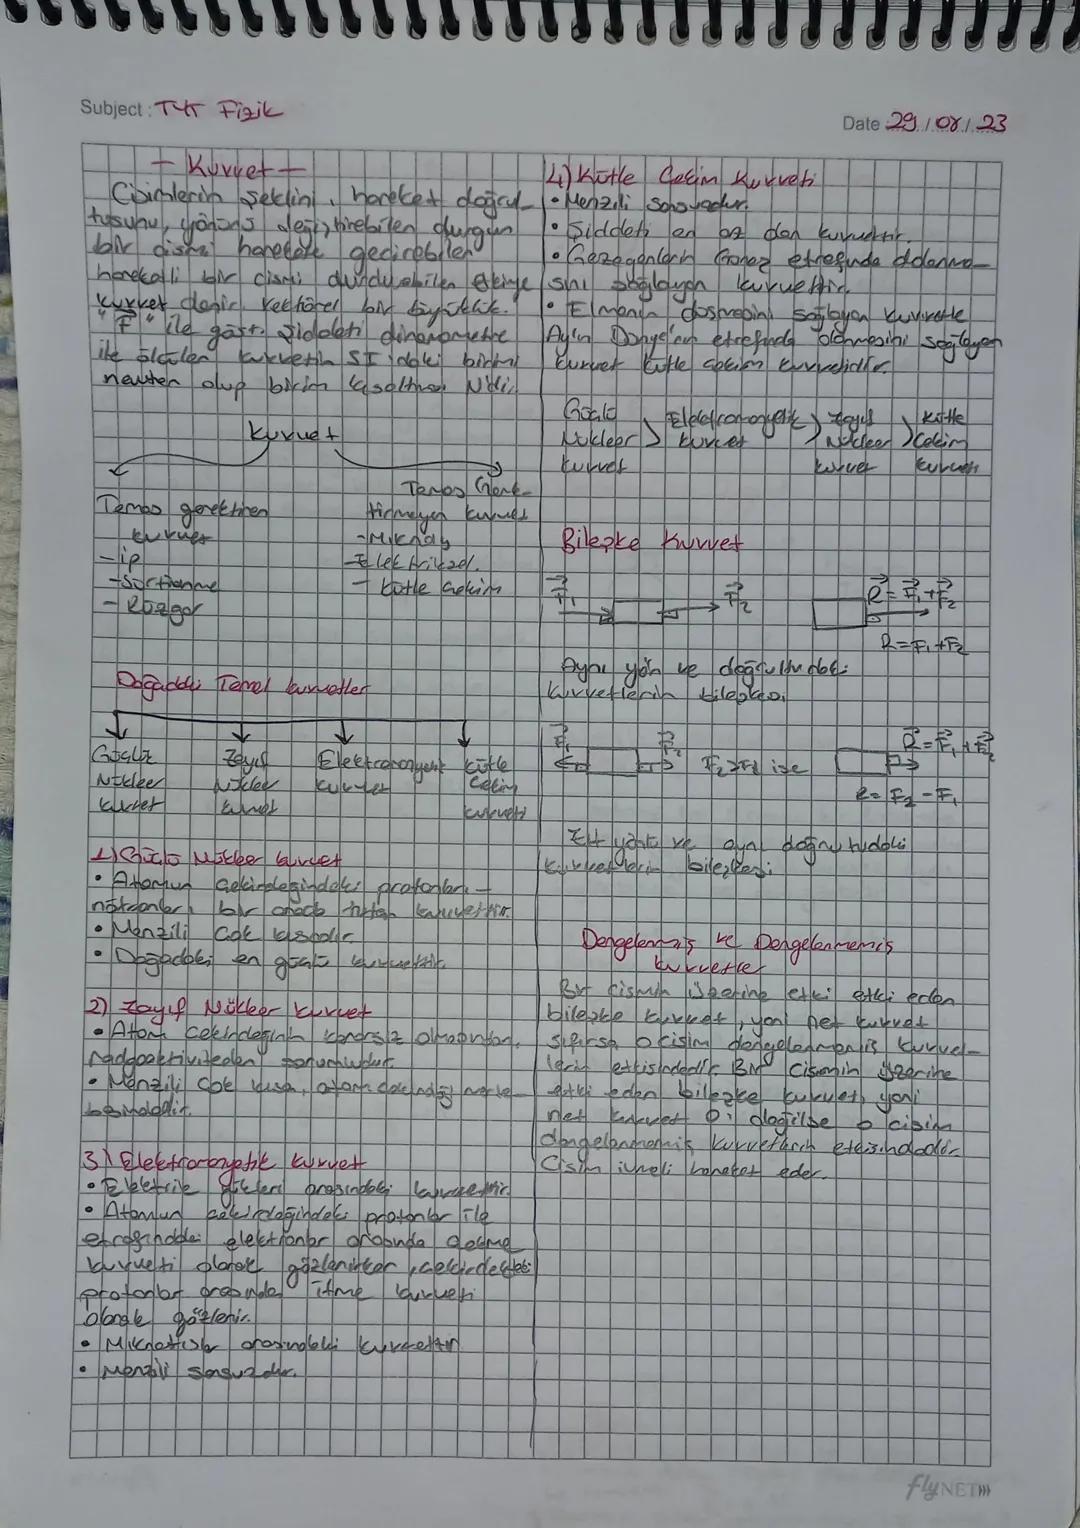 Subject: TYT Fizik
Date 29/08/23
- Kuvvet -
Cisimlerin şeklini, hareket doğrul-
tusunu, yönünü değiştirebilen durgun
bir cismi harekete geçirebilen
hareketli bir cismi durdurabilen etkiye
kuvvet denir. Vektörel bir büyüklük.
"F" ile göst. Şiddeti dinamometre
ile ölçülen kuvvetin SI daki birimi
newton olup birim kısaltması N'dir.
Kuvvet
Temas gerektiren
kuvvet
- ip
- Sürtünme
- Rüzgar
Temas Gerek-
tirmeyen kuvvet
- Mıknatıs
- Elektriksel.
- kütle çekim
Doğadaki Temel kuvvetler
Güçlü
Nükleer
kuvvet
Zayıf
Nükleer
kuvvet
Elektromanyetik
kuvvet
kütle
çekim
kuvveti
1) Güçlü Nükleer kuvvet
• Atomun çekirdeğindeki protonları -
nötronları bir arada tutan kuvvettir.
• Menzili çok kısadır.
• Doğadaki en güçlü kuvvettir.
2) Zayıf Nükleer kuvvet
• Atom çekirdeğinin kararsız olmasından,
radyoaktiviteden sorumludur.
• Menzili çok kısa, atom
3) Elektromanyetik kuvvet
• Elektrik yükleri arasındaki kuvvettir.
• Atomun çekirdeğindeki protonlar ile
etrafındaki elektronlar arasında çekme
kuvveti olarak gözlenirken, çekirdekteki
protonlar arasında itme kuvveti
olarak gözlenir.
• Mıknatıslar arasındaki kuvvettir.
• Menzili sonsuzdur.
4) Kütle Çekim Kuvveti
• Menzili sonsuzdur.
• Şiddeti en az olan kuvvettir.
• Gezegenlerin Güneş etrafında dolanma-
sını sağlayan kuvvettir.
• Elmanın düşmesini sağlayan kuvvetle
Ay'ın Dünya'nın etrafında dönmesini sağlayan
kuvvet kütle çekim kuvvetidir.
Güçlü
Nükleer
kuvvet
>
Elektromanyetik
kuvvet
>
Zayıf
Nükleer
kuvvet
>
kütle
Çekim
kuvveti
Bileşke Kuvvet
F₁ F₂
R = F₁ + F₂
R = F₁ + F₂
Aynı yön ve doğrultudaki
kuvvetlerin bileşkesi
F₁ F₂ F₂ > F₁ ise
R = F₁ + F₂
R = F₂ - F₁
Zıt yönlü ve aynı doğrultudaki
kuvvetlerin bileşkesi
Dengelenmiş ve Dengelenmemiş
kuvvetler
Bir cismin üzerine etki etki eden
bileşke kuvvet, yani net kuvvet
sıfırsa o cisim dengelenmiş kuvvet-
lerin etkisindedir. Bir cismin üzerine
etki eden bileşke kuvvet, yani
net kuvvet 0 değilse o cisim
dengelenmemiş kuvvetlerin etkisindedir.
Cisim ivmeli hareket eder.
flyNET